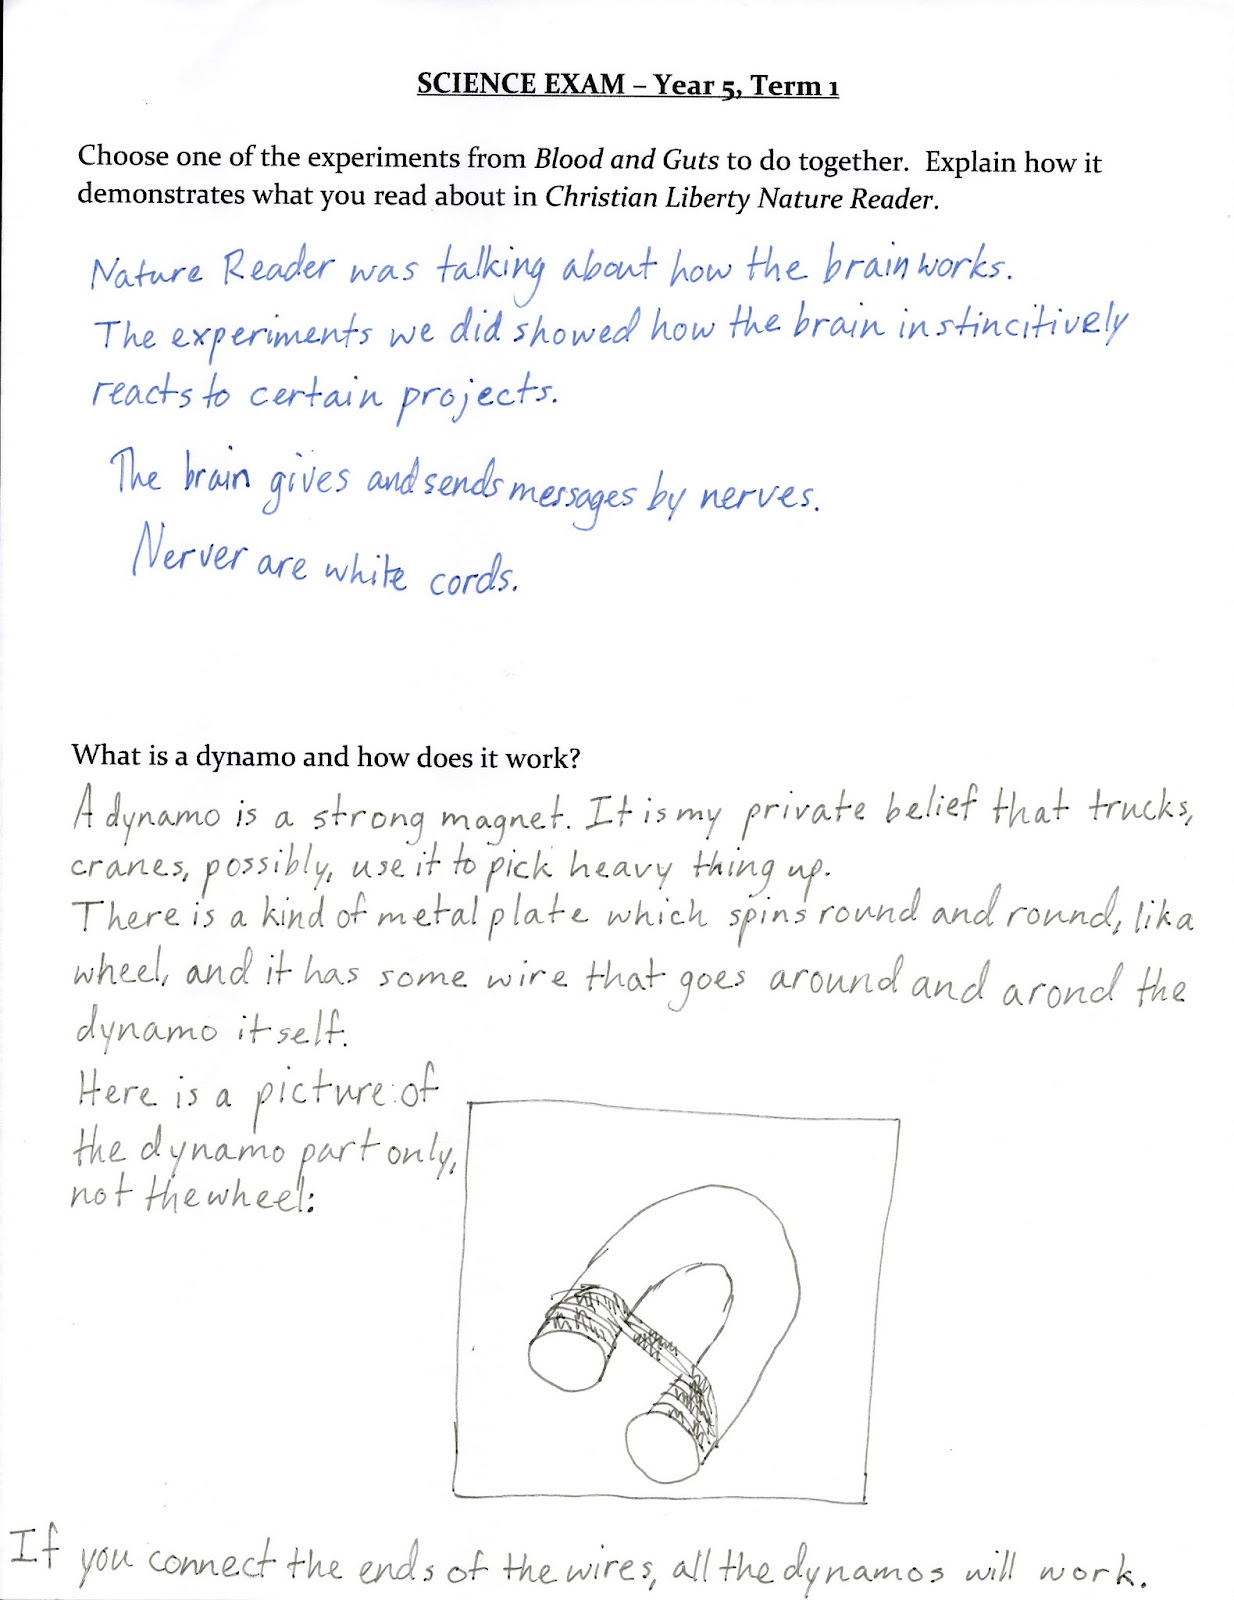 SCIENCE EXAM – Year 5, Term 1
Choose one of the experiments from Blood and Guts to do together. Explain how it
demonstrates what you read about in Christian Liberty Nature Reader.
Nature Reader was talking about how the brain works.
The experiments we did showed how the brain instincitively
reacts to certain projects.
The brain gives and sends messages by nerves.
Nerver are white cords.
What is a dynamo and how does it work?
A dynamo is a strong magnet. It is my private belief that trucks,
cranes, possibly, use it to pick heavy thing up.
There is a kind of metal plate which spins round and round, lika
wheel, and it has some wire that goes around and arond the
dynamo itself.
Here is a picture of
the dynamo part only,
not the wheel:
If you connect the ends of the wires, all the dynamos will work.